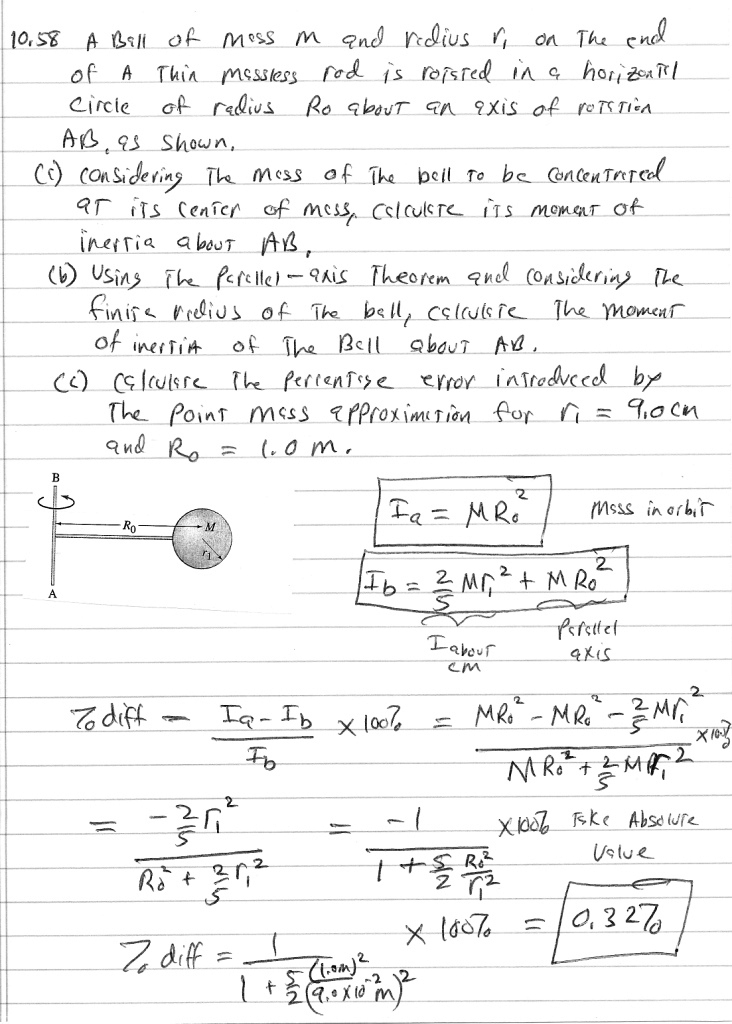 10.58 A Ball of mass M and radius r₁ on the end
of A Thin massless rod is rotated in a horizontal
circle of radius Ro about an axis of rotation
AB, as shown.
(a) considering the mass of the ball to be concentrated
at its center of mass, calculate its moment of
inertia about AB.
(b) Using the parallel-axis Theorem and considering the
finite radius of the ball, calculate the moment
of inertia of the Ball about AB.
(c) Calculate the percentage error introduced by
The point mass approximation for r₁ = 9.0 cm
and Ro = 1.0 m.
B
R₀ M
r₁
A
Ia = MRo² Mass in orbit
Ib = 2/5 Mr₁² + MRo²
I about cm Parallel axis
% diff = (Ia - Ib)/Ib × 100% = (MRo² - MRo² - 2/5 Mr₁²)/(MRo² + 2/5 Mr₁²) × 100%
= (-2/5 r₁²)/(Ro² + 2/5 r₁²) = -1/(1 + 5/2 Ro²/r₁²) × 100% Take Absolute Value
% diff = 1/(1 + 5/2 (1.0m)²/(9.0×10⁻²m)²) × 100% = 0.32%